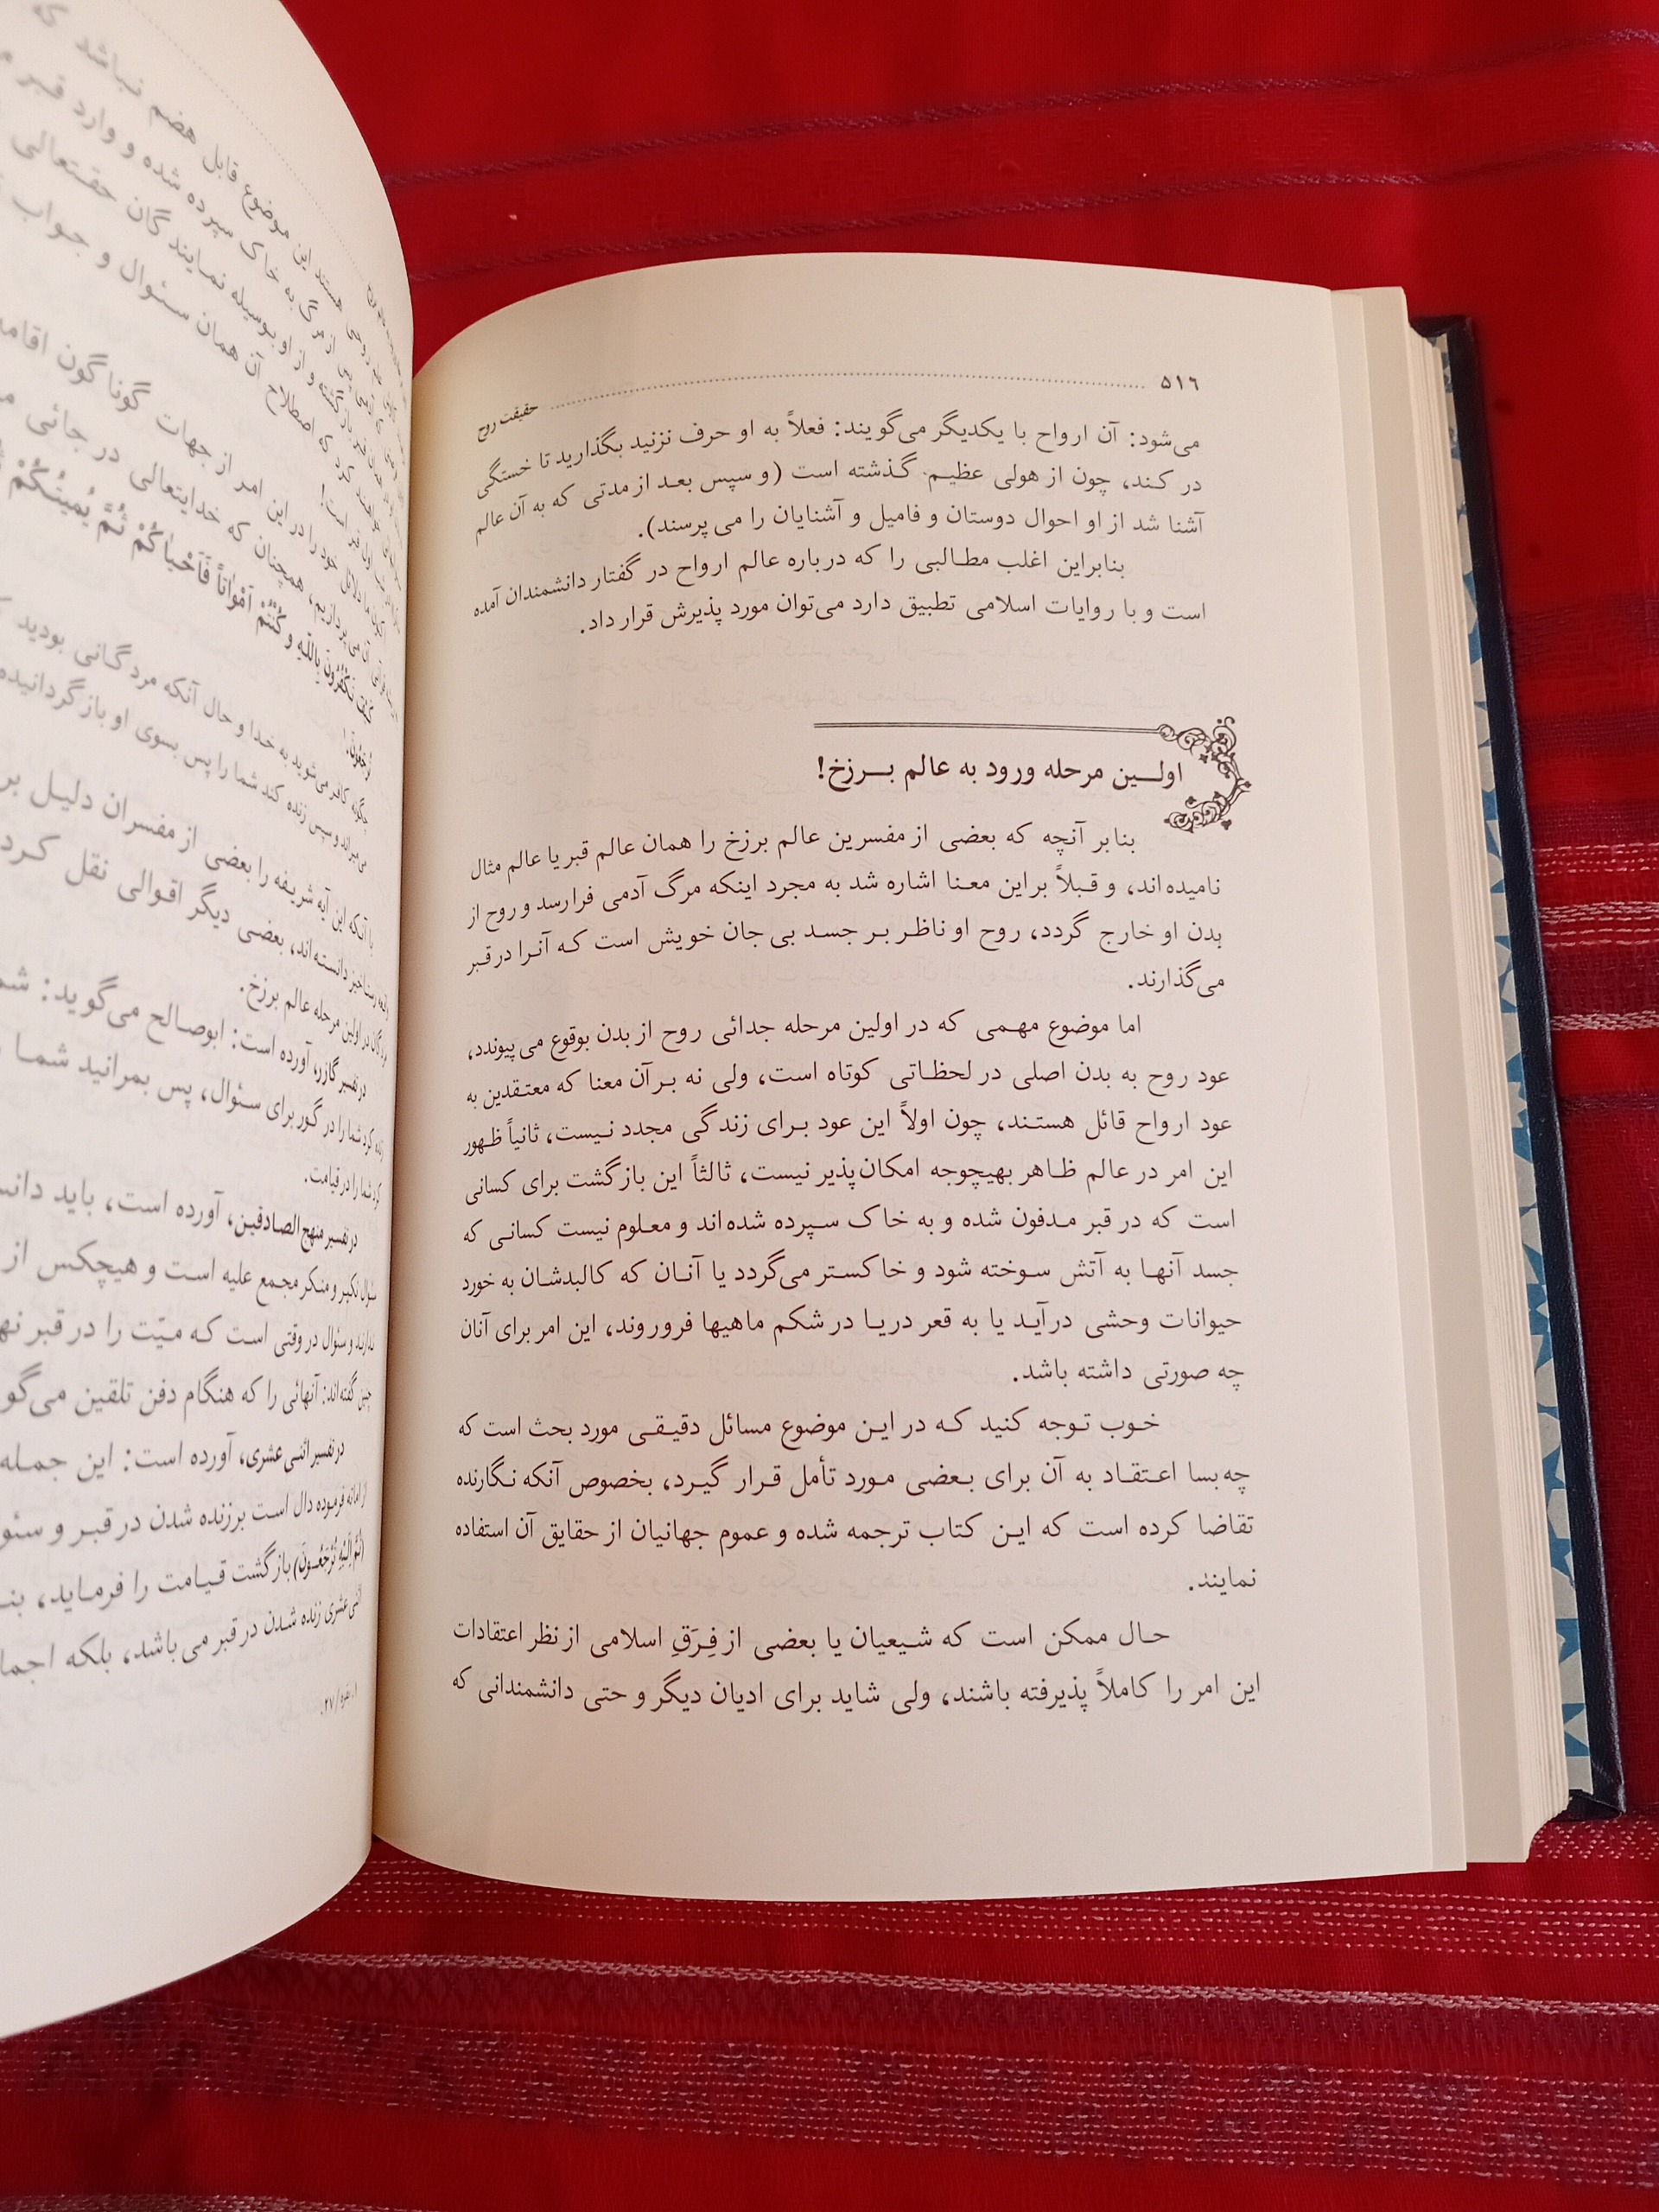 ۵۱۶ حقیقت روح
می‌شود: آن ارواح با یکدیگر می‌گویند: فعلاً به او حرف نزنید بگذارید تا خستگی
در کند، چون از هولی عظیم گذشته است (و سپس بعد از مدتی که به آن عالم
آشنا شد از او احوال دوستان و فامیل و آشنایان را می‌پرسند).
بنابراین اغلب مطالبی را که درباره عالم ارواح در گفتار دانشمندان آمده
است و با روایات اسلامی تطبیق دارد می‌توان مورد پذیرش قرار داد.
اولین مرحله ورود به عالم برزخ!
بنابر آنچه که بعضی از مفسرین عالم برزخ را همان عالم قبر یا عالم مثال
نامیده‌اند، و قبلاً براین معنا اشاره شد به مجرد اینکه مرگ آدمی فرارسد و روح از
بدن او خارج گردد، روح او ناظر بر جسد بی جان خویش است که آنرا در قبر
می‌گذارند.
اما موضوع مهمی که در اولین مرحله جدائی روح از بدن بوقوع می‌پیوندد،
عود روح به بدن اصلی در لحظاتی کوتاه است، ولی نه بر آن معنا که معتقدین به
عود ارواح قائل هستند، چون اولاً این عود برای زندگی مجدد نیست، ثانیاً ظهور
این امر در عالم ظاهر بهیچوجه امکان‌پذیر نیست، ثالثاً این بازگشت برای کسانی
است که در قبر مدفون شده و به خاک سپرده شده‌اند و معلوم نیست کسانی که
جسد آنها به آتش سوخته شود و خاکستر می‌گردد یا آنان که کالبدشان به خورد
حیوانات وحشی درآید یا به قعر دریا در شکم ماهیها فروروند، این امر برای آنان
چه صورتی داشته باشد.
خوب توجه کنید که در این موضوع مسائل دقیقی مورد بحث است که
چه بسا اعتقاد به آن برای بعضی مورد تأمل قرار گیرد، بخصوص آنکه نگارنده
تقاضا کرده است که این کتاب ترجمه شده و عموم جهانیان از حقایق آن استفاده
نمایند.
حال ممکن است که شیعیان یا بعضی از فِرَقِ اسلامی از نظر اعتقادات
این امر را کاملاً پذیرفته باشند، ولی شاید برای ادیان دیگر و حتی دانشمندانی که
هستند این موضوع قابل هضم نباشد که
از مرگ به خاک سپرده شده و وارد قبر
و از او بوسیله نمایندگان حقتعالی
آن همان سئوال و جواب
خود را در این امر از جهات گوناگون اقامه
آن می‌پردازیم، همچنان که خدایتعالی در جائی
تَکْفُرُونَ بِاللّٰهِ وَ کُنْتُمْ اَمْوٰاتاً فَاَحْیٰاکُمْ ثُمَّ یُمیتُکُمْ
چگونه کافر می‌شوید به خدا و حال آنکه مردگانی بودید
می‌میراند و سپس زنده کند شما را پس بسوی او بازگردانیده
با آنکه این آیه شریفه را بعضی از مفسران دلیل بر
دانسته‌اند، بعضی دیگر اقوالی نقل کرد
در اولین مرحله عالم برزخ.
در تفسیر گازر، آورده است: ابوصالح می‌گوید:
کرد شما را در گور برای سئوال، پس بمرانید شما
کرد شما را در قیامت.
در تفسیر منهج الصادقین، آورده است، باید
سئوال نکیر و منکر مجمع علیه است و هیچکس از
ندارند و سئوال در وقتی است که میّت را در قبر
چنین گفته‌اند: آنهائی را که هنگام دفن تلقین
در تفسیر اثنی عشری، آورده است: این جمله
از اماته فرموده دال است بر زنده شدن در قبر و
(ثُمَّ اِلَیْهِ تُرْجَعُونَ) بازگشت قیامت را فرماید،
اثنی عشری زنده شدن در قبر می‌باشد، بلکه